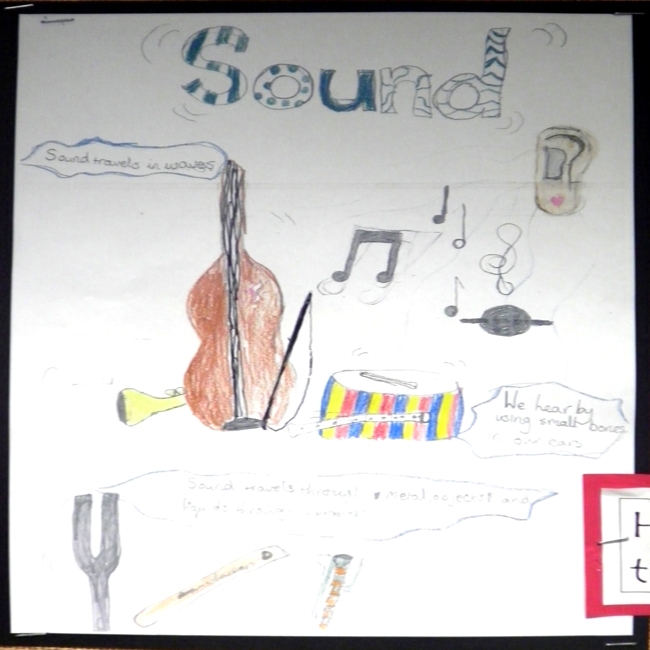 Sound
Sound travels in waves
We hear by
using small bones
in our ears
Sound travels through metal objects and
liquids
H
t